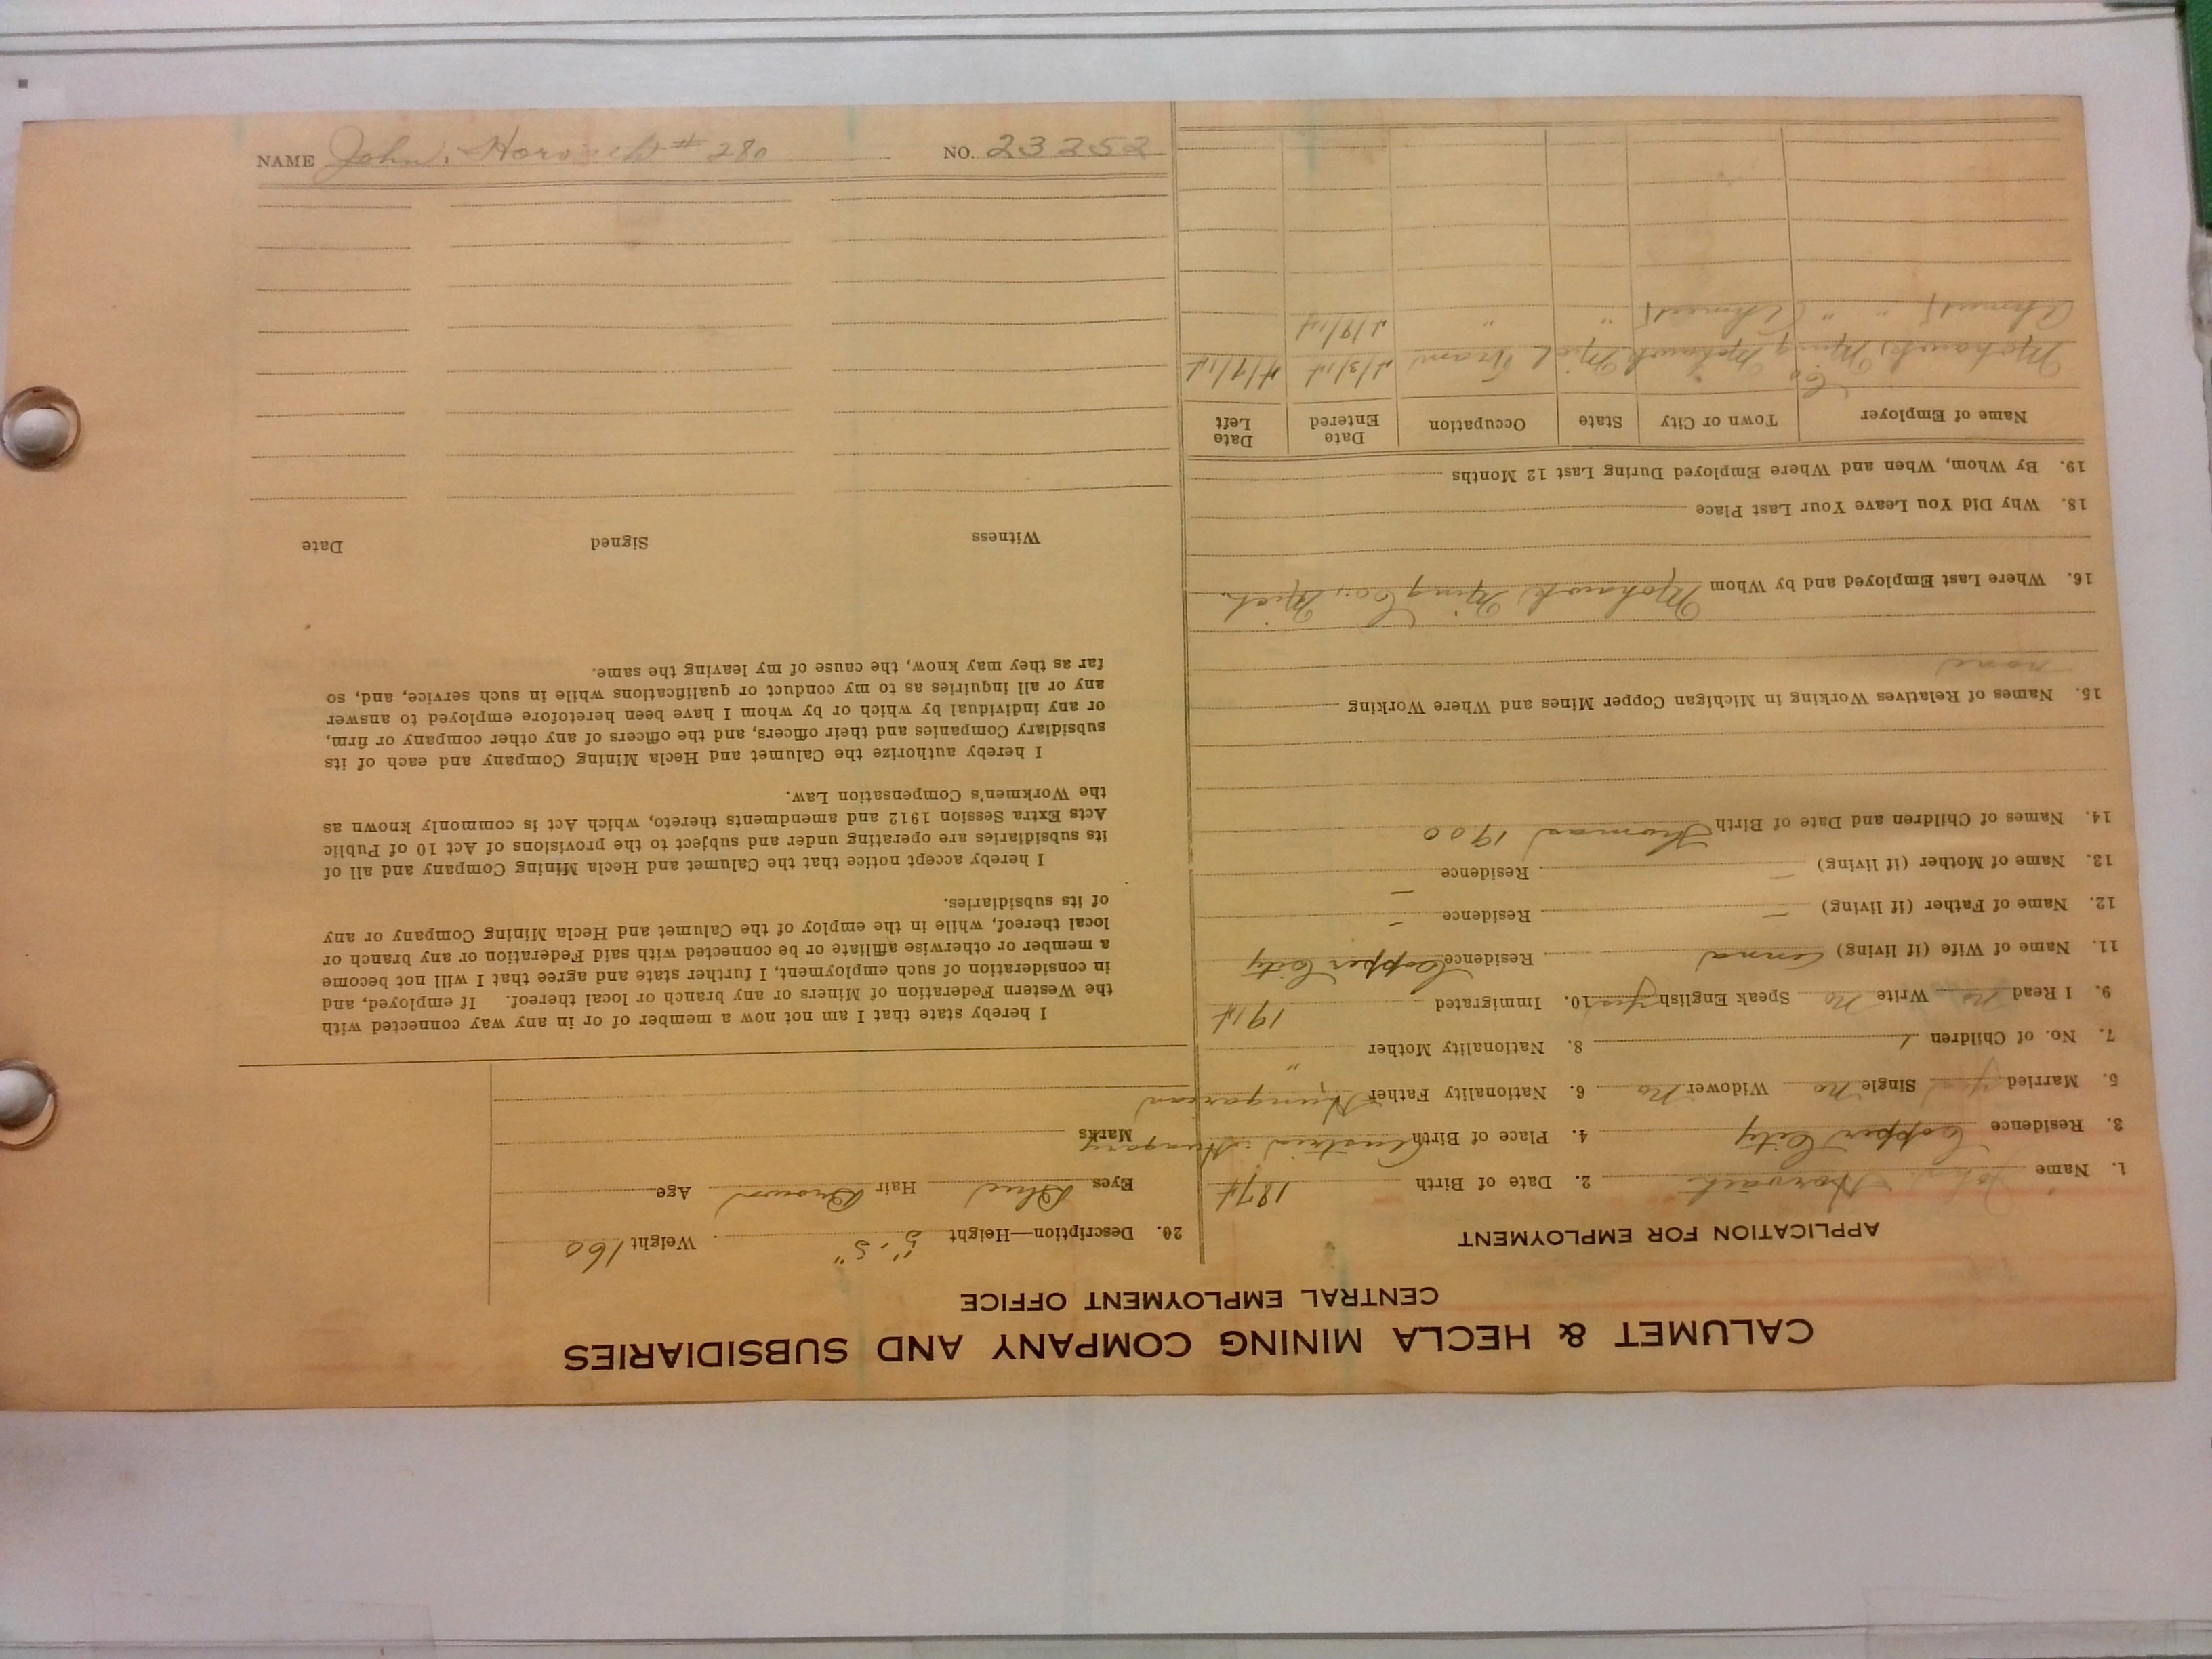 CALUMET & HECLA MINING COMPANY AND SUBSIDIARIES
CENTRAL EMPLOYMENT OFFICE
APPLICATION FOR EMPLOYMENT
1. Name John Horvath 2. Date of Birth 1874
3. Residence Copper City 4. Place of Birth Austria-Hungary
5. Married yes Single No Widower No 6. Nationality Father Hungarian
7. No. of Children 1 8. Nationality Mother "
9. I Read no Write No Speak English yes 10. Immigrated
11. Name of Wife (if living) Anna Residence Copper City
12. Name of Father (if living) — Residence —
13. Name of Mother (if living) — Residence —
14. Names of Children and Date of Birth Thomas 1900
15. Names of Relatives Working in Michigan Copper Mines and Where Working
none
16. Where Last Employed and by Whom Mohawk Ming Co., Mich.
18. Why Did You Leave Your Last Place
19. By Whom, When and Where Employed During Last 12 Months
Name of Employer Town or City State Occupation Date Entered Date Left
Mohawk Ming Co. Mohawk Mich Tram
Ahmeek " " Ahmeek " "
20. Description—Height 5'-5" Weight 160
Eyes Blue Hair Brown Age
Marks
I hereby state that I am not now a member of or in any way connected with
the Western Federation of Miners or any branch or local thereof. If employed, and
in consideration of such employment, I further state and agree that I will not become
a member or otherwise affiliate or be connected with said Federation or any branch or
local thereof, while in the employ of the Calumet and Hecla Mining Company or any
of its subsidiaries.
I hereby accept notice that the Calumet and Hecla Mining Company and all of
its subsidiaries are operating under and subject to the provisions of Act 10 of Public
Acts Extra Session 1912 and amendments thereto, which Act is commonly known as
the Workmen's Compensation Law.
I hereby authorize the Calumet and Hecla Mining Company and each of its
subsidiary Companies and their officers, and the officers of any other company or firm,
or any individual by which or by whom I have been heretofore employed to answer
any or all inquiries as to my conduct or qualifications while in such service, and, so
far as they may know, the cause of my leaving the same.
Witness Signed Date
NAME John. Horvath # 280 NO. 23252